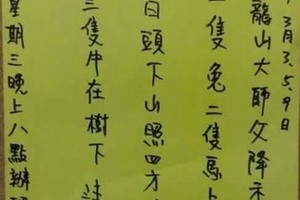 3月3.5.9
龍山大師父降示
隻兔二隻馬上
日頭下山照四方
三隻牛在樹下
星期三晚上八點辦